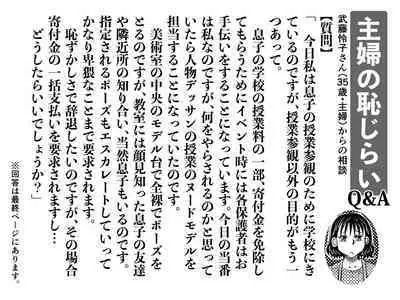 主婦の恥じらい
Q&A
武藤怜子さん(35歳・主婦)からの相談
【質問】
「今日私は息子の授業参観のために学校にき
ているのですが、授業参観以外の目的がもう一
つあって。
息子の学校の授業料の一部、寄付金を免除し
てもらうためにイベント時には各保護者はお
手伝いをすることになっています。今日の当番
は私なのですが、何をやらされるのかと思って
いたら人物デッサンの授業のヌードモデルを
担当することになっていたのです。
美術室の中央のモデル台で全裸でポーズを
とるのですが、教室には顔見知った息子の友達
や隣近所の知り合い、当然息子もいるのです。
指定されるポーズもエスカレートしていって
かなり卑猥なことまで要求されます。
恥ずかしさで辞退したいのですが、その場合
寄付金の一括支払いを要求されますし…
どうしたらいいでしょうか?」
※回答は最終ページにあります。